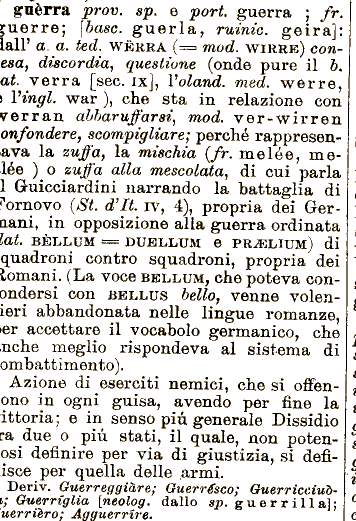 guèrra prov. sp. e port. guerra; fr.
guerre; [basc. guerla, ruinic. geira]:
dall' a. a. ted. WĚRRA (= mod. WIRRE) con-
esa, discordia, questione (onde pure il b.
at. verra [sec. IX], l'oland. med. werre,
e l'ingl. war), che sta in relazione con
verran abbaruffarsi, mod. ver-wirren
onfondere, scompigliare; perché rappresen-
ava la zuffa, la mischia (fr. melée, me-
lée) o zuffa alla mescolata, di cui parla
il Guicciardini narrando la battaglia di
Fornovo (St. d'It. IV, 4), propria dei Ger-
mani, in opposizione alla guerra ordinata
lat. BÈLLUM = DUELLUM e PRÆLIUM) di
squadroni contro squadroni, propria dei
Romani. (La voce BELLUM, che poteva con-
ondersi con BELLUS bello, venne volen-
ieri abbandonata nelle lingue romanze,
per accettare il vocabolo germanico, che
anche meglio rispondeva al sistema di
combattimento).
Azione di eserciti nemici, che si offen-
ono in ogni guisa, avendo per fine la
vittoria; e in senso piú generale Dissidio
ra due o piú stati, il quale, non poten-
osi definire per via di giustizia, si defi-
isce per quella delle armi.
Deriv. Guerreggiàre; Guerrésco; Guerricciuò-
a; Guerríglia [neolog. dallo sp. guerrilla];
Guerrièro; Agguerrire.